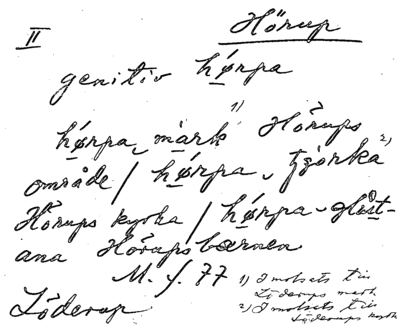 II Hörup
genitiv hǿrpa
hǿrpa märk 1) Hörups
område / hǿrpa tjörka 2)
Hörups kyrka / hǿrpa glöst-
ana Hörupsbarnen
M. f. 77
Löderup
1) I motsats till
Löderups mark
2) I motsats till
Löderups kyrka